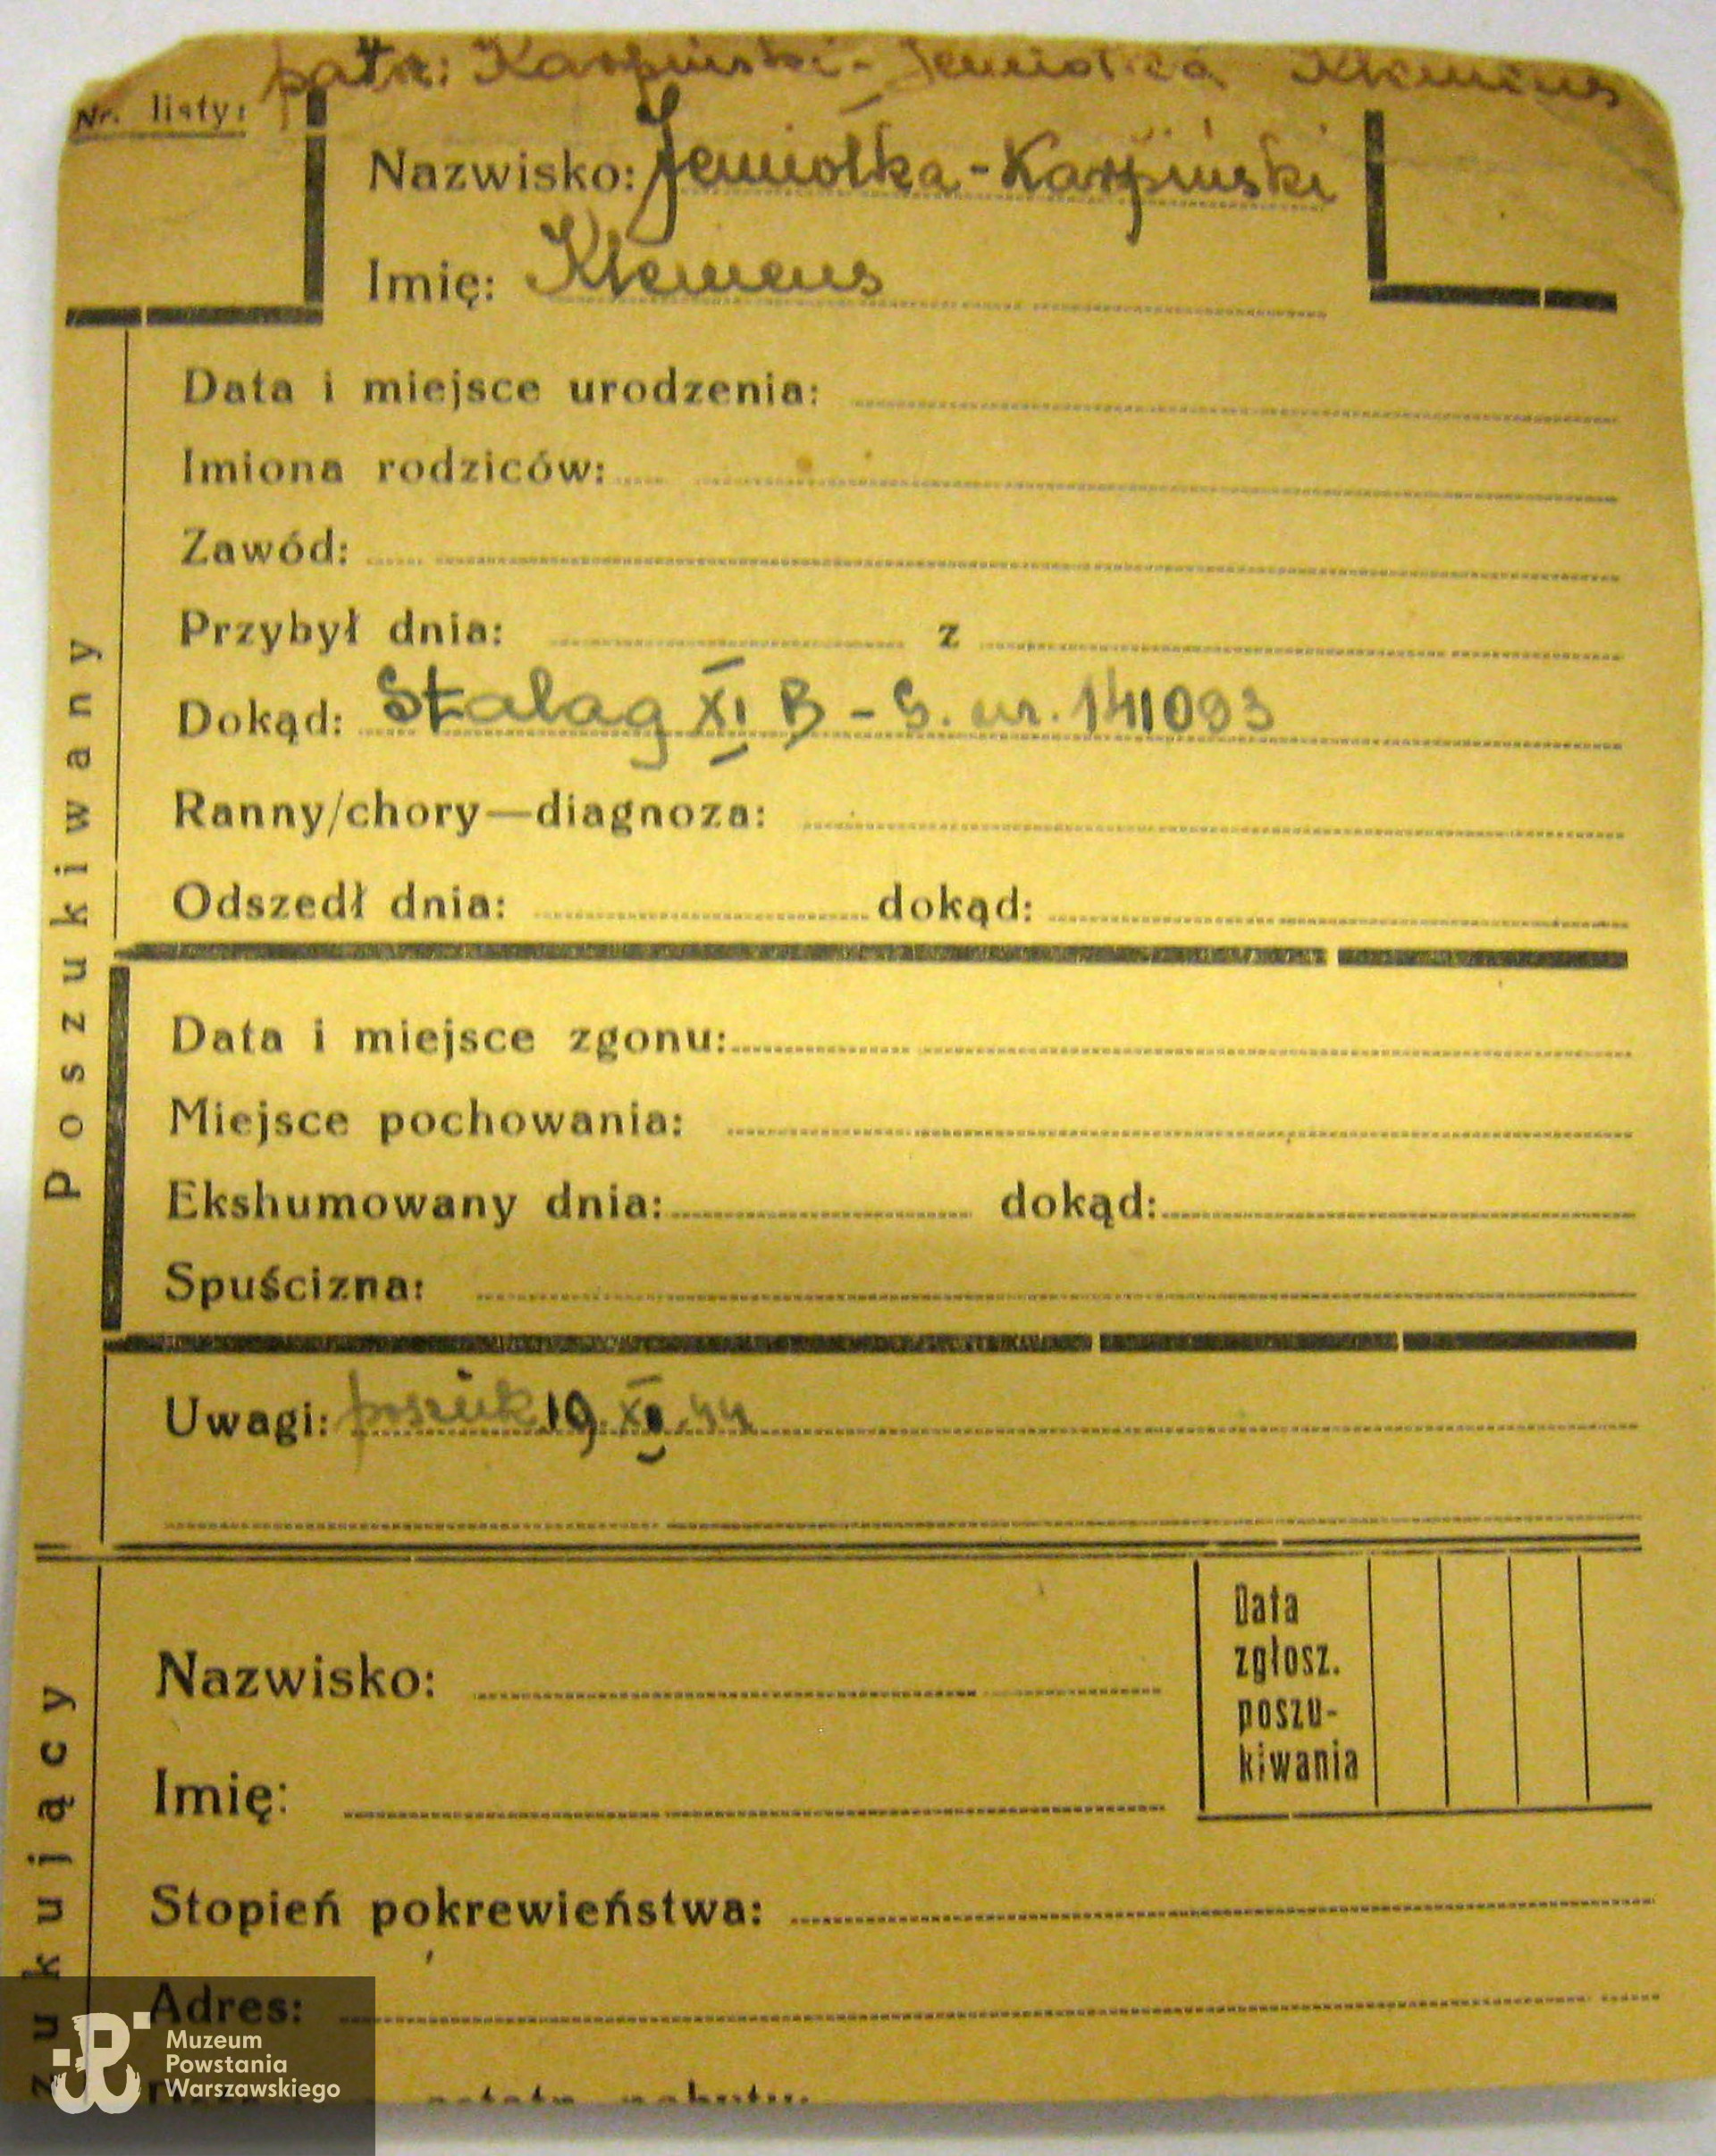 patrz: Karpiński-Jemiołka Klemens
Nr. listy:
Nazwisko: Jemiołka-Karpiński
Imię: Klemens
Poszukiwany
Data i miejsce urodzenia:
Imiona rodziców:
Zawód:
Przybył dnia: z
Dokąd: Stalag XI B - S. nr. 141093
Ranny/chory—diagnoza:
Odszedł dnia: dokąd:
Data i miejsce zgonu:
Miejsce pochowania:
Ekshumowany dnia: dokąd:
Spuścizna:
Uwagi: poszuk 19. XI. 44
zukujący
Nazwisko:
Imię:
Data
zgłosz.
poszu-
kiwania
Stopień pokrewieństwa:
Adres:
Muzeum
Powstania
Warszawskiego